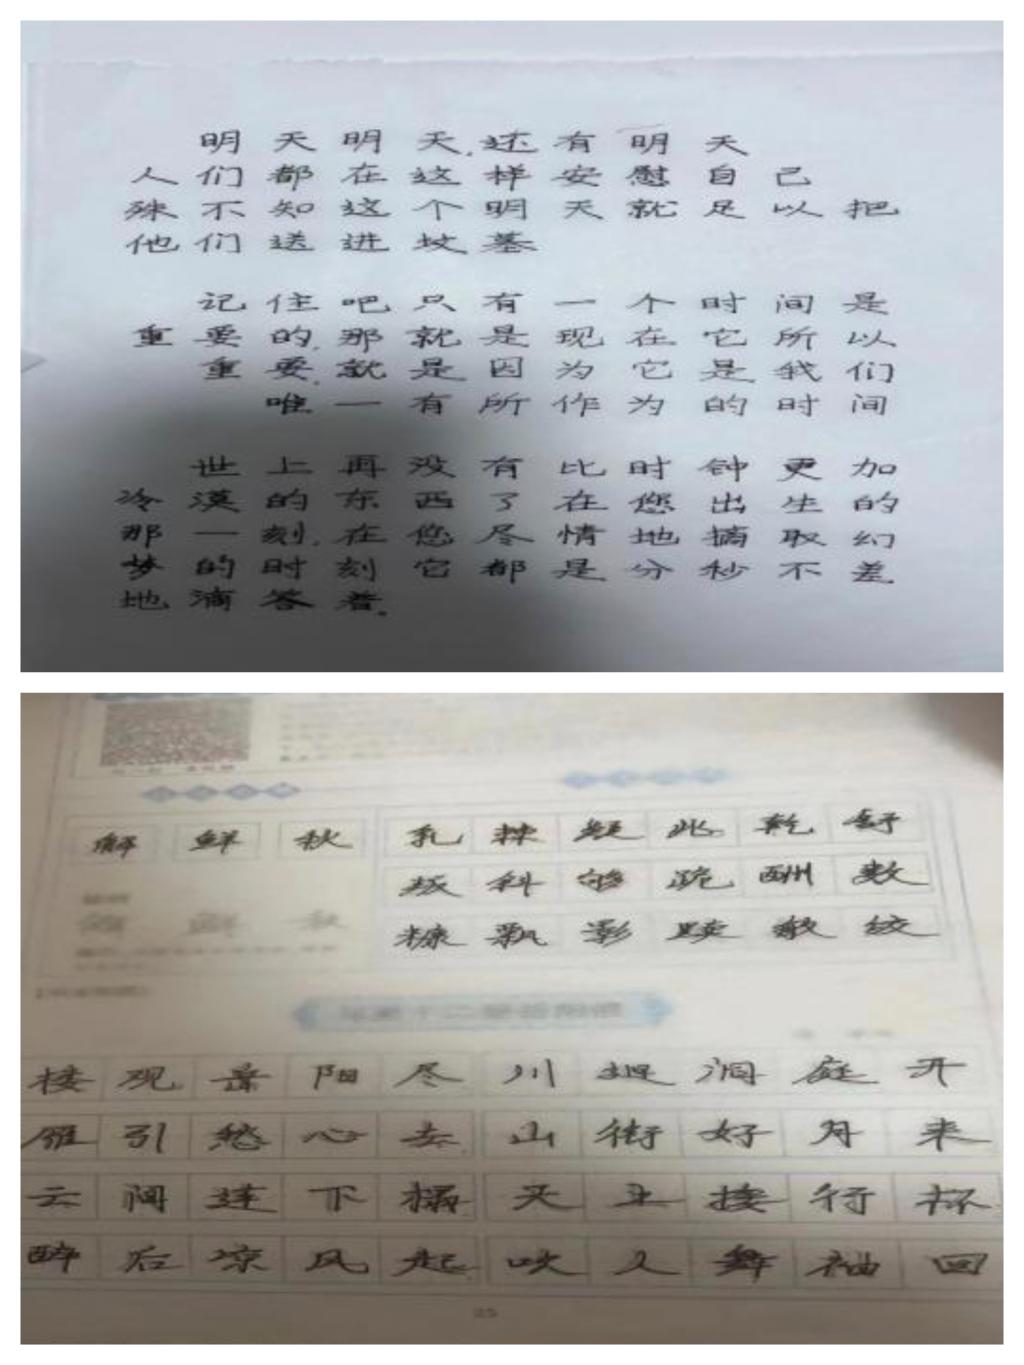 明天明天,还有明天
人们都在这样安慰自己
殊不知这个明天就足以把
他们送进坟墓
记住吧只有一个时间是
重要的,那就是现在它所以
重要,就是因为它是我们
唯一有所作为的时间
世上再没有比时钟更加
冷漠的东西了在您出生的
那一刻,在您尽情地摘取幻
梦的时刻它都是分秒不差
地滴答着。
解 鲜 秋
乳 棘 疑 兆 乾 舒
叛 科 够 跪 酬 数
糠 飘 影 敬 绞
楼观岳阳尽 川迥洞庭开
雁引愁心去 山衔好月来
云间连下榻 天上接行杯
醉后凉风起 吹人舞袖回
25